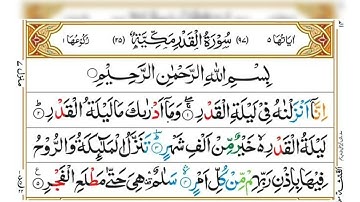 اٰیَاتُهَا ۵ (۹۷) سُوْرَةُ الْقَدْرِ مَكِّیَّةٌ (۲۵) رُكُوْعُهَا ۱
بِسْمِ اللّٰهِ الرَّحْمٰنِ الرَّحِیْمِ
اِنَّاۤ اَنْزَلْنٰهُ فِیْ لَیْلَةِ الْقَدْرِ ۝۱ وَمَاۤ اَدْرٰىكَ مَا لَیْلَةُ الْقَدْرِ ۝۲
لَیْلَةُ الْقَدْرِ ۙ۬ خَیْرٌ مِّنْ اَلْفِ شَهْرٍ ۝۳ تَنَزَّلُ الْمَلٰٓىِٕكَةُ وَالرُّوْحُ
فِیْهَا بِاِذْنِ رَبِّهِمْ ۚ مِنْ كُلِّ اَمْرٍ ۝۴ سَلٰمٌ ۛ۫ هِیَ حَتّٰی مَطْلَعِ الْفَجْرِ ۝۵